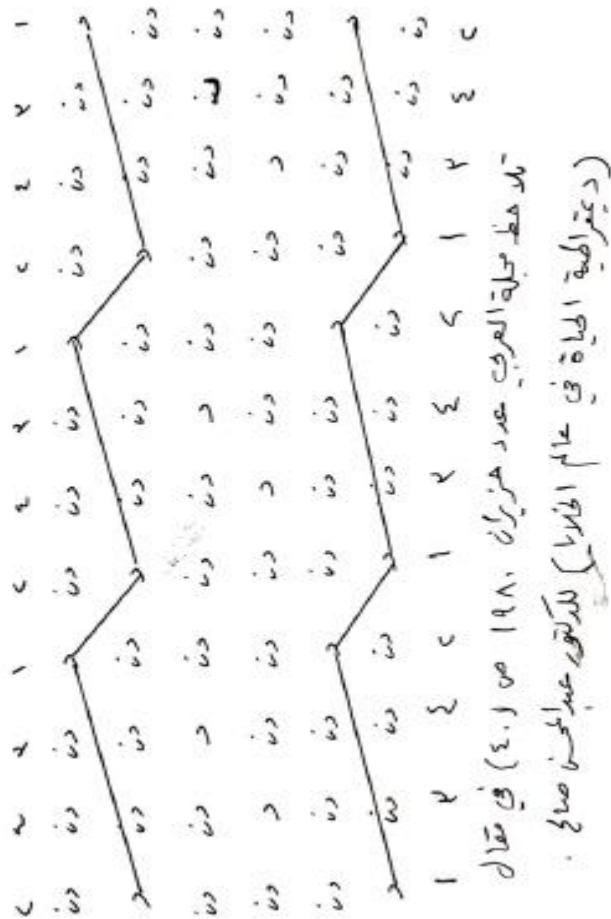 ١ ٣ ٤ ٢ ١ ٣ ٤ ٢ ١ ٣ ٤ ٢
د دن دن دن د دن دن دن د دن دن دن
دن دن دن د دن دن دن د دن دن دن د
دن دن دن دن دن د دن دن دن د دن دن
دن دن د دن دن دن د دن دن دن د دن
د دن دن دن د دن دن دن د دن دن دن
دن دن دن د دن دن دن د دن دن دن د
٢ ٤ ٣ ١ ٢ ٤ ٣ ١ ٢ ٤ ٣ ١
تلاحظ مجلة العربي عدد حزيران ١٩٨٠ ص (٤٠١) في مقال
(ديمقراطية الحياة في عالم الخلايا) للدكتور عبد المحسن صالح .